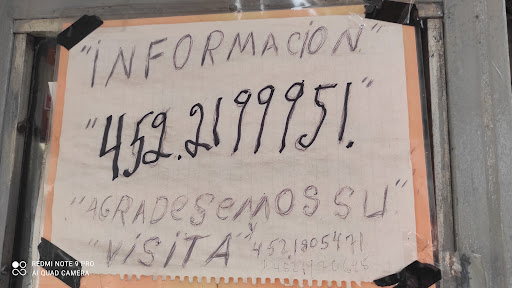 "INFORMACION"
"452.2199951."
"AGRADeSemos SU"
"VISITA" y 452.1205471
REDMI NOTE 9 PRO
AI QUAD CAMERA